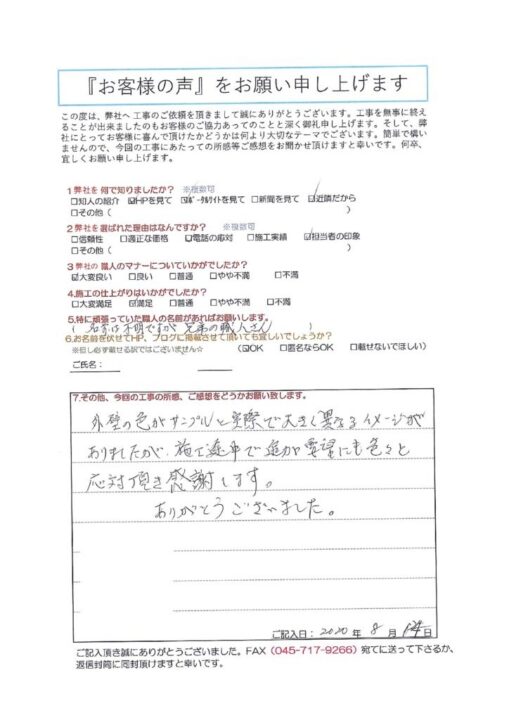 『お客様の声』をお願い申し上げます
この度は、弊社へ工事のご依頼を頂きまして誠にありがとうございます。工事を無事に終え
ることが出来ましたのもお客様のご協力あってのことと深く御礼申し上げます。そして、弊
社にとってお客様に喜んで頂けたかどうかは何より大切なテーマでございます。簡単で構い
ませんので、今回の工事にあたっての所感等ご感想をお聞かせ頂けますと幸いです。何卒、
宜しくお願い申し上げます。
1弊社を何で知りましたか？ ※複数可
□知人の紹介 ☑HPを見て ☑ポータルサイトを見て □新聞を見て ☑近隣だから
□その他（ ）
2弊社を選ばれた理由はなんですか？ ※複数可
□信頼性 □適正な価格 ☑電話の応対 □施工実績 ☑担当者の印象
□その他（ ）
3弊社の職人のマナーについていかがでしたか？
☑大変良い □良い □普通 □やや不満 □不満
4.施工の仕上がりはいかがでしたか？
□大変満足 ☑満足 □普通 □やや不満 □不満
5.特に頑張っていた職人の名前があればお願いします。
（ 名前は不明ですが 兄弟の職人さん ）
6.お名前を伏せてHP、ブログに掲載させて頂いても宜しいでしょうか？
※但し必ず載せる訳ではございません☆ （☑OK □匿名ならOK □載せないでほしい）
ご氏名：
7.その他、今回の工事の所感、ご感想をどうかお願い致します。
外壁の色がサンプルと実際で大きく異なるイメージが
ありましたが、施工途中で追加要望にも色々と
応対頂き感謝します。
ありがとうございました。
ご記入日：2020 年 8 月 日
ご記入頂き誠にありがとうございました。FAX（045-717-9266）宛てに送って下さるか、
返信封筒に同封頂けますと幸いです。